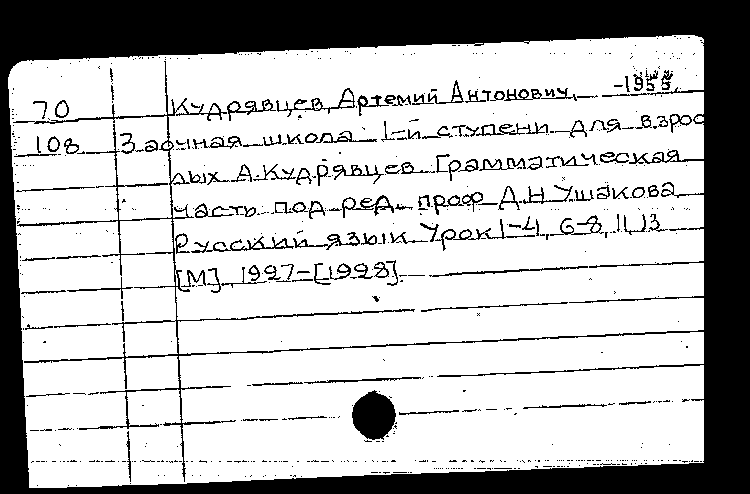 70 Кудрявцев, Артемий Антонович,
108 Заочная школа 1-й ступени для взрос
лых А. Кудрявцев Грамматическая
часть под ред. проф Д.Н Ушакова
Русский язык. Урок 1-4, 6-8, 11, 13
[М], 1927-[1928].